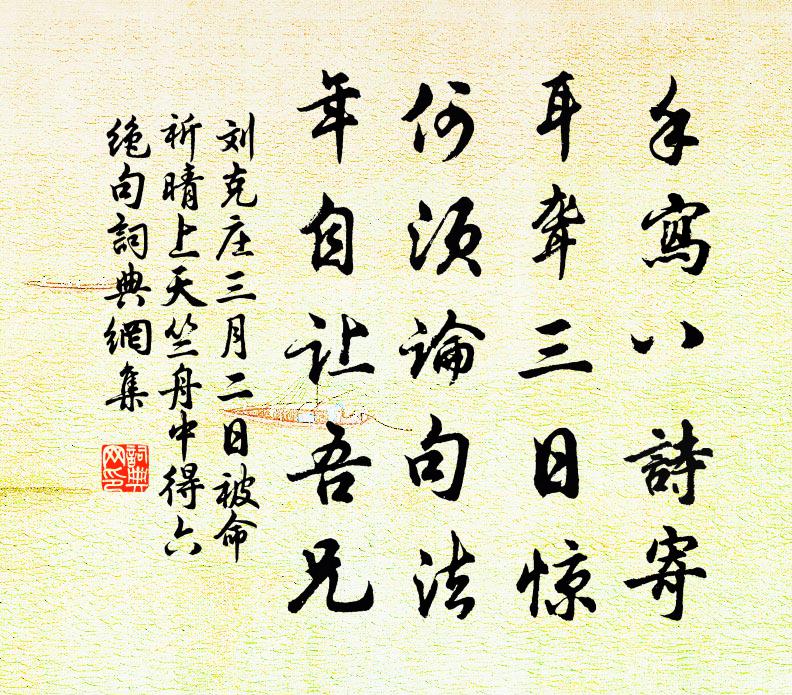 手寫八詩寄
耳聋三日惊
何须論句法
年自让吾兄
刘克庄三月二日被命
祈晴上天竺舟中得六
绝句詞典網集
詞典
网印